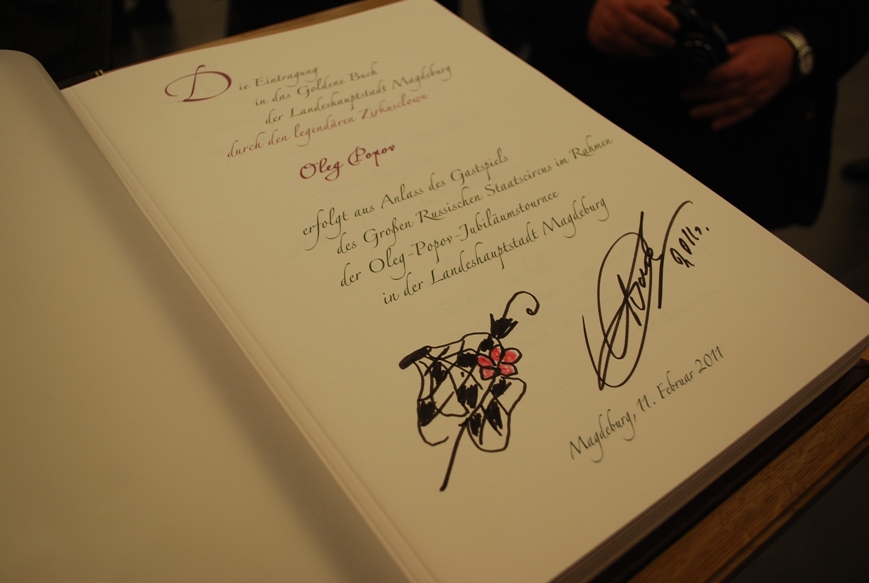 Die Eintragung
in das Goldene Buch
der Landeshauptstadt Magdeburg
durch den legendären Zirkusclown
Oleg Popov
erfolgt aus Anlass des Gastspiels
des Großen Russischen Staatscircus im Rahmen
der Oleg-Popov-Jubiläumstournee
in der Landeshauptstadt Magdeburg
Magdeburg, 11. Februar 2011